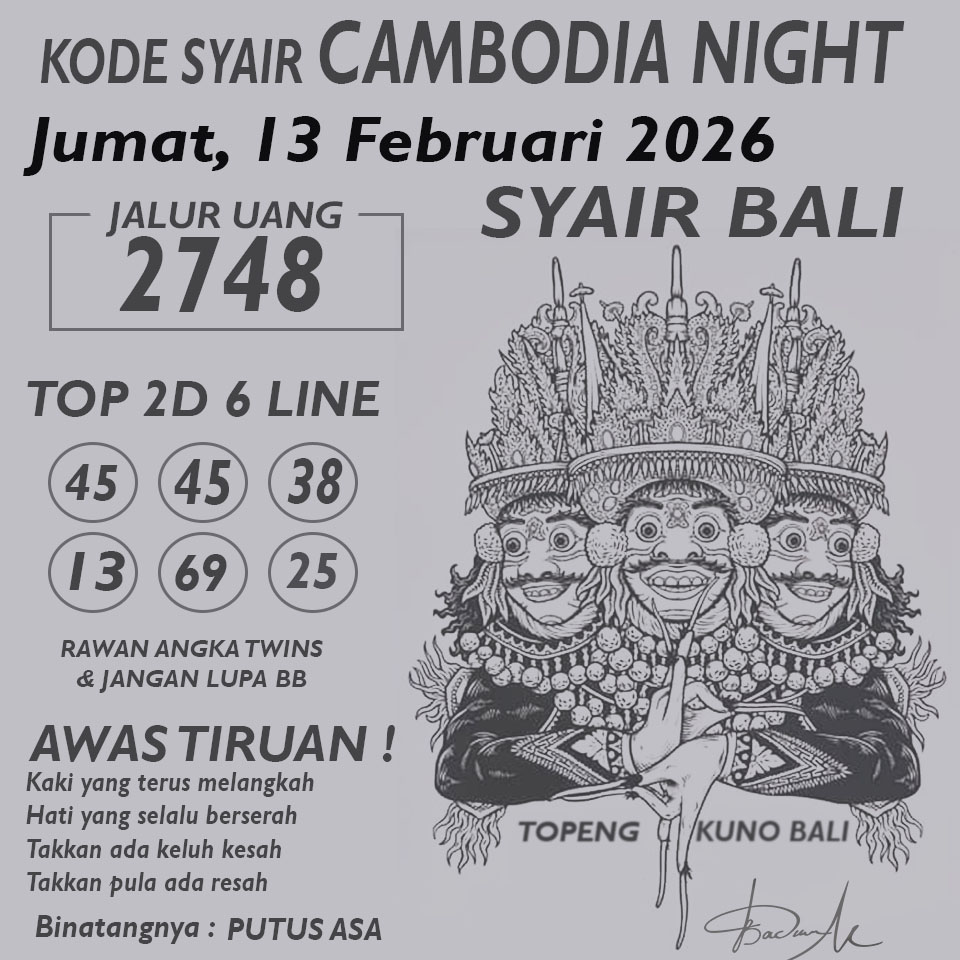 KODE SYAIR CAMBODIA NIGHT
Jumat, 13 Februari 2026
SYAIR BALI
JALUR UANG
2748
TOP 2D 6 LINE
45 45 38
13 69 25
RAWAN ANGKA TWINS
& JANGAN LUPA BB
AWAS TIRUAN !
Kaki yang terus melangkah
Hati yang selalu berserah
Takkan ada keluh kesah
Takkan pula ada resah
Binatangnya : PUTUS ASA
TOPENG KUNO BALI